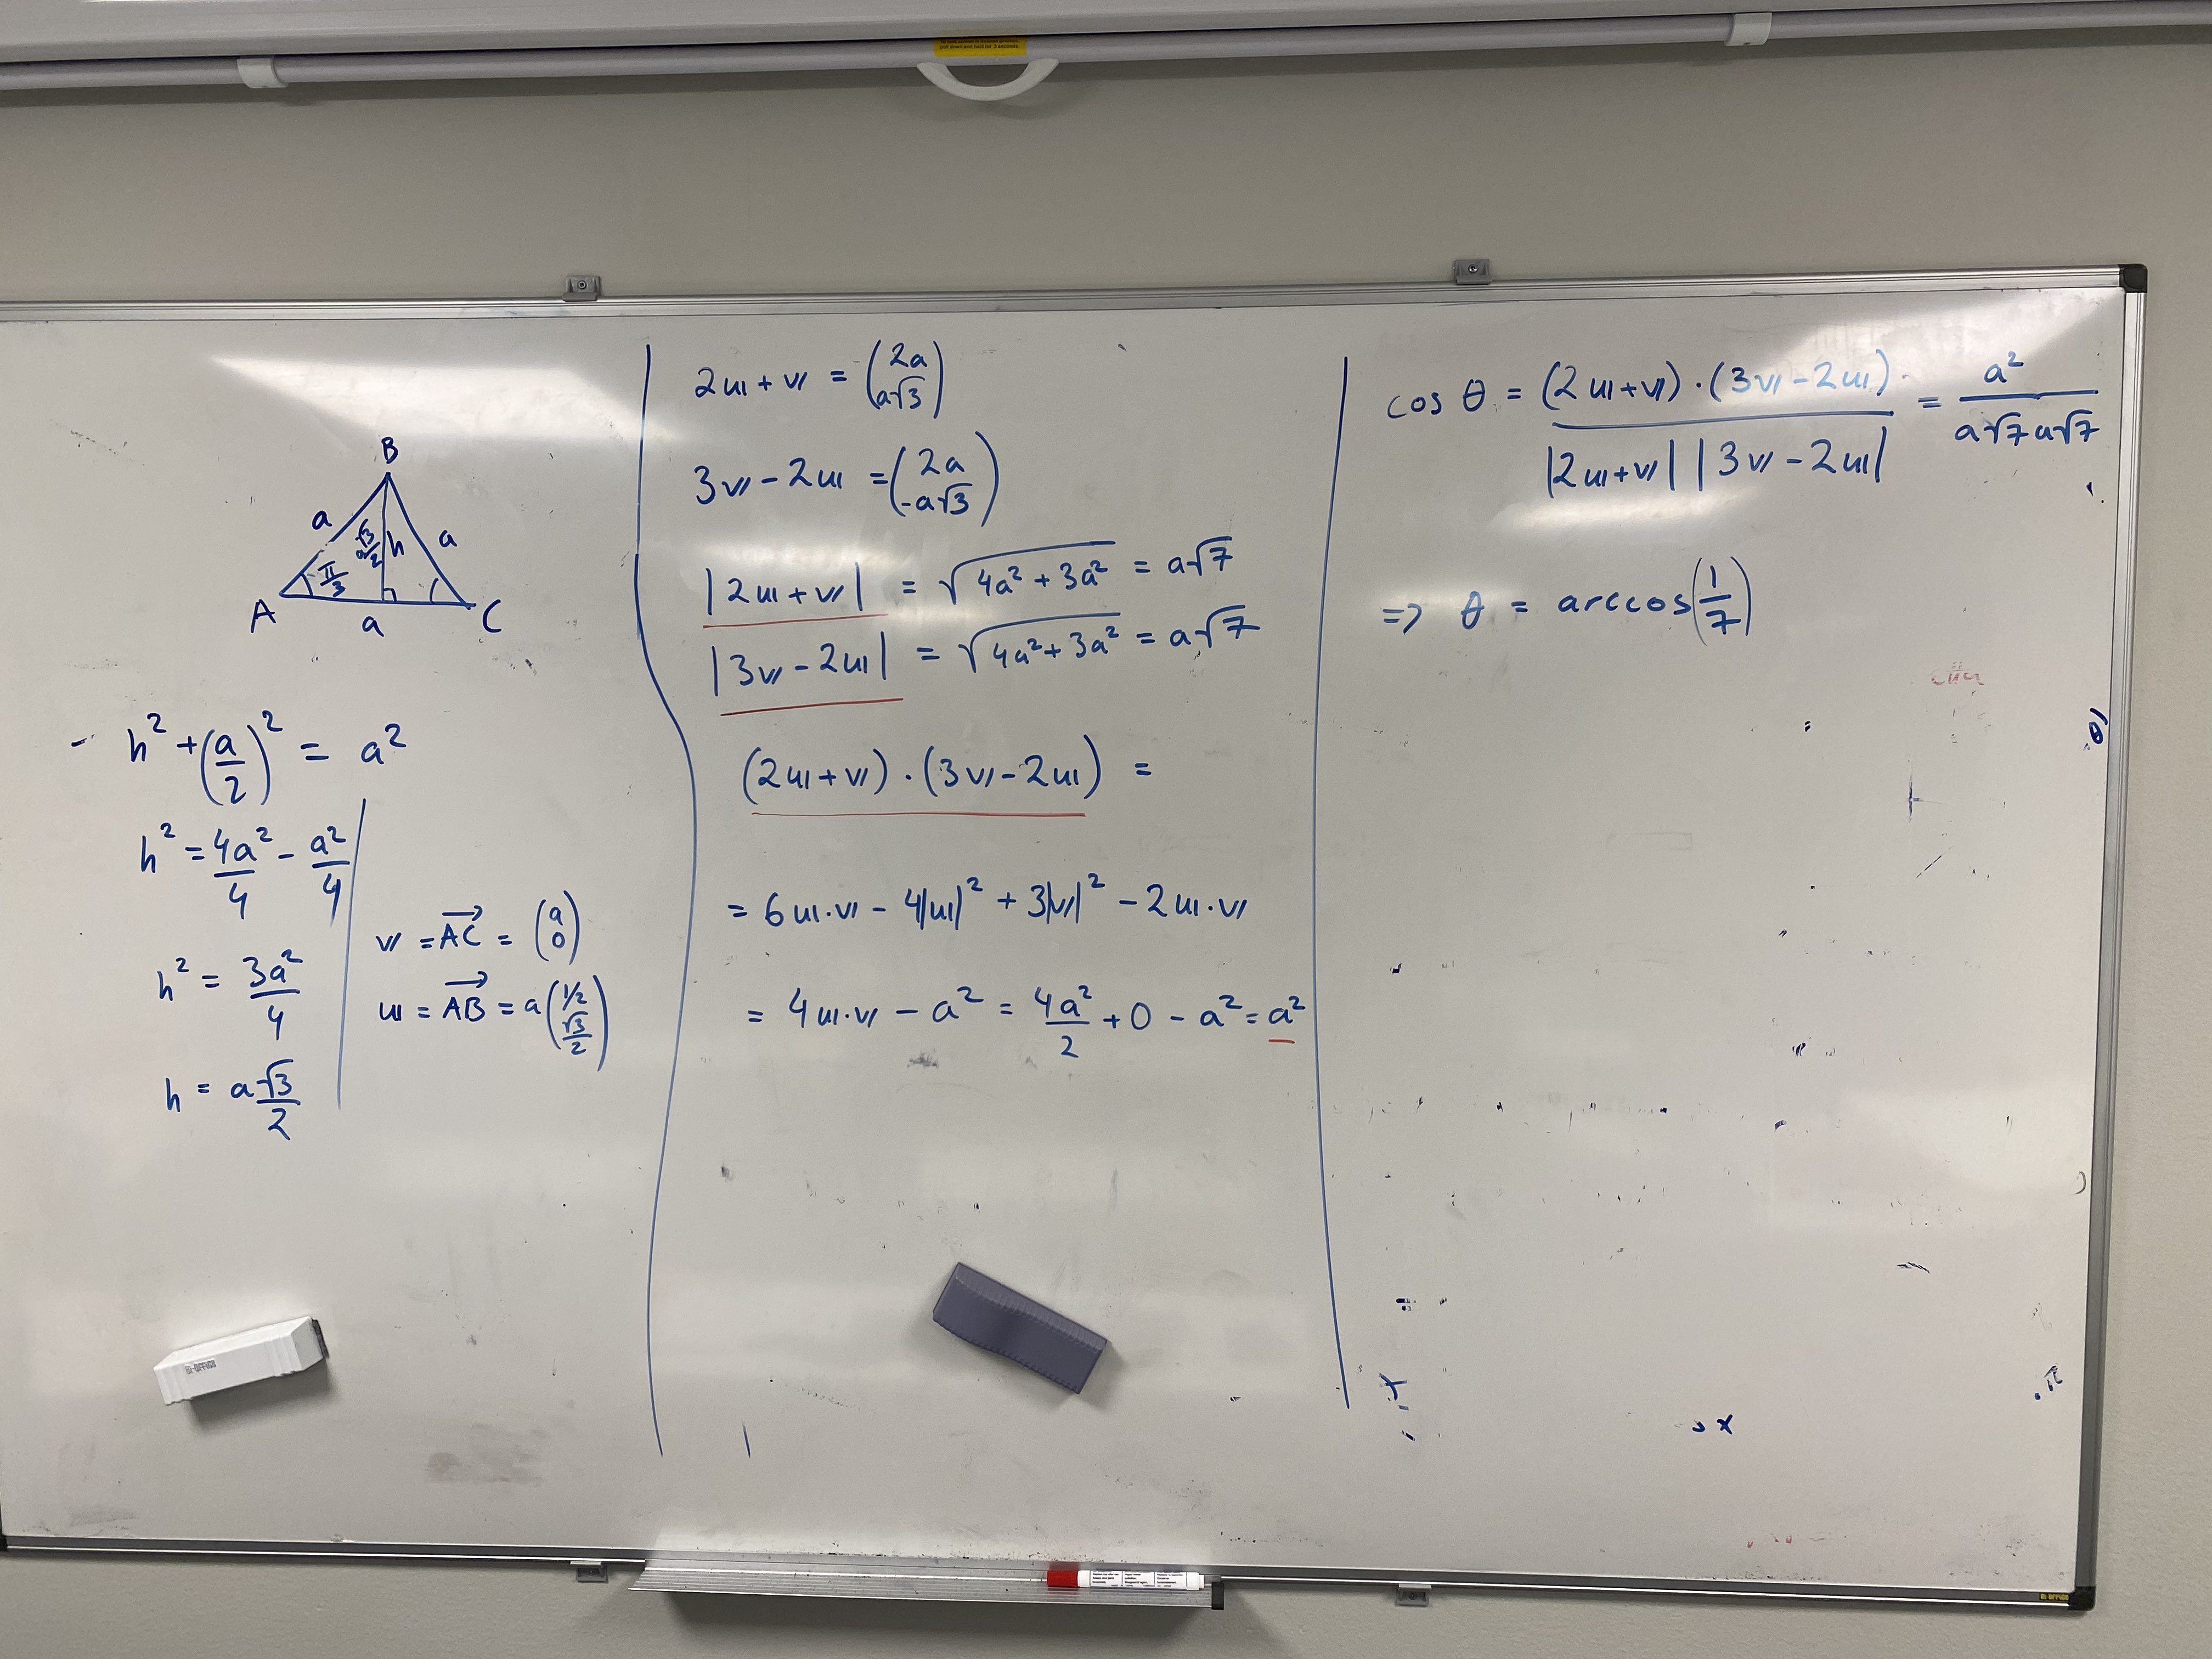 B
a
a√3/2
h
a
π/3
A
a
C
h² + (a/2)² = a²
h² = 4a²/4 - a²/4
h² = 3a²/4
h = a√3/2
v = AC→ = (a
0)
u = AB→ = a(1/2
√3/2)
2u + v = (2a
a√3)
3v - 2u = (2a
-a√3)
|2u + v| = √(4a² + 3a²) = a√7
|3v - 2u| = √(4a² + 3a²) = a√7
(2u + v) · (3v - 2u) =
= 6u·v - 4|u|² + 3|v|² - 2u·v
= 4u·v - a² = 4a²/2 + 0 - a² = a²
cos θ = (2u+v) · (3v - 2u) / |2u+v| |3v - 2u| = a² / a√7 a√7
=> θ = arccos(1/7)
x
BI-OFFICE